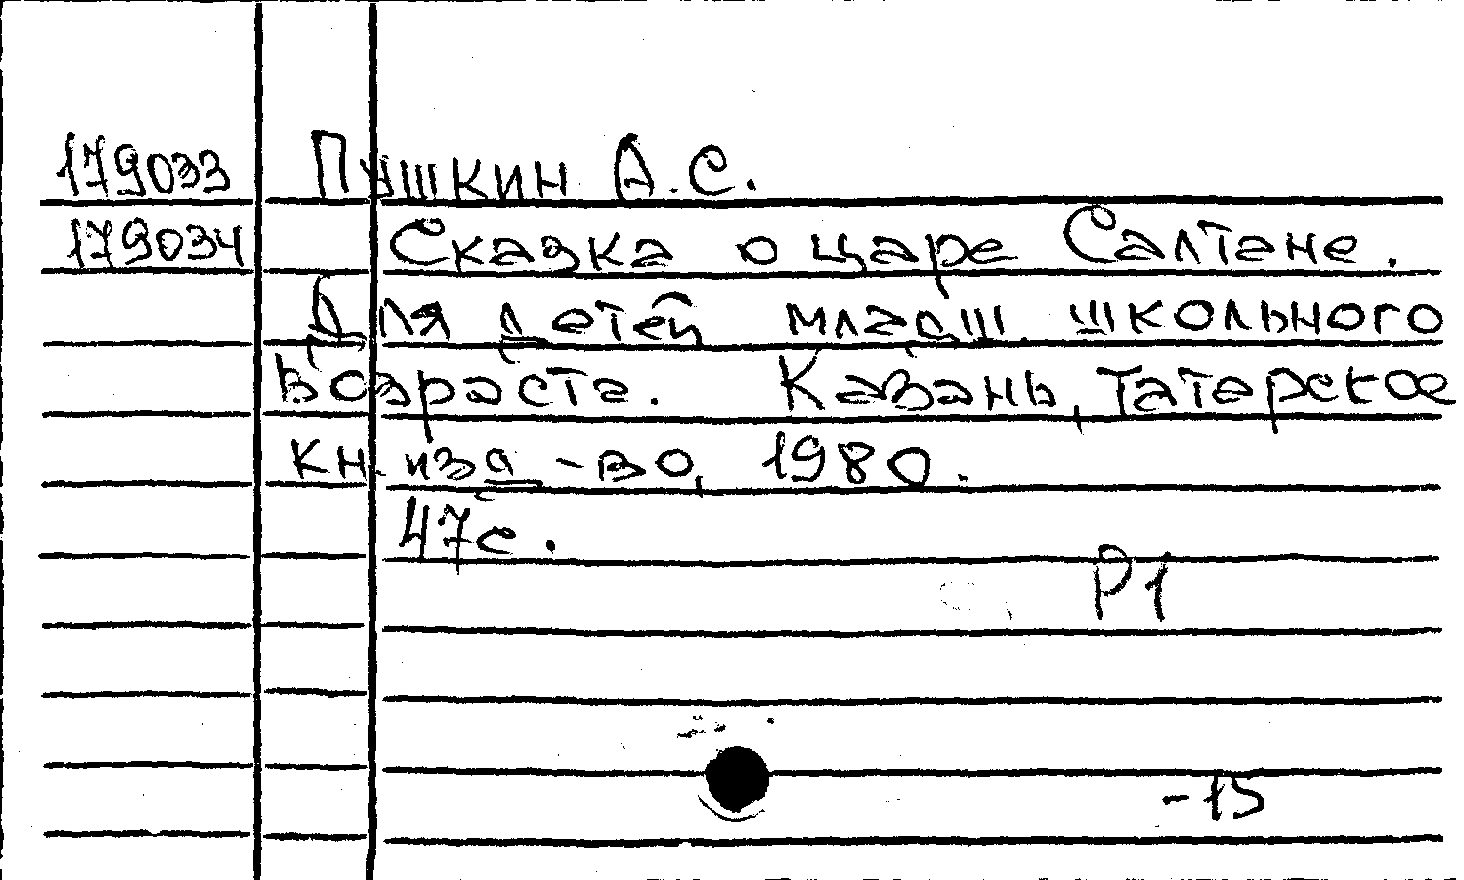 179033 Пушкин А.С.
179034 Сказка о царе Салтане.
Для детей младш. школьного
возраста. Казань, Татарское
кн. изд-во, 1980.
47с.
Р1
-15